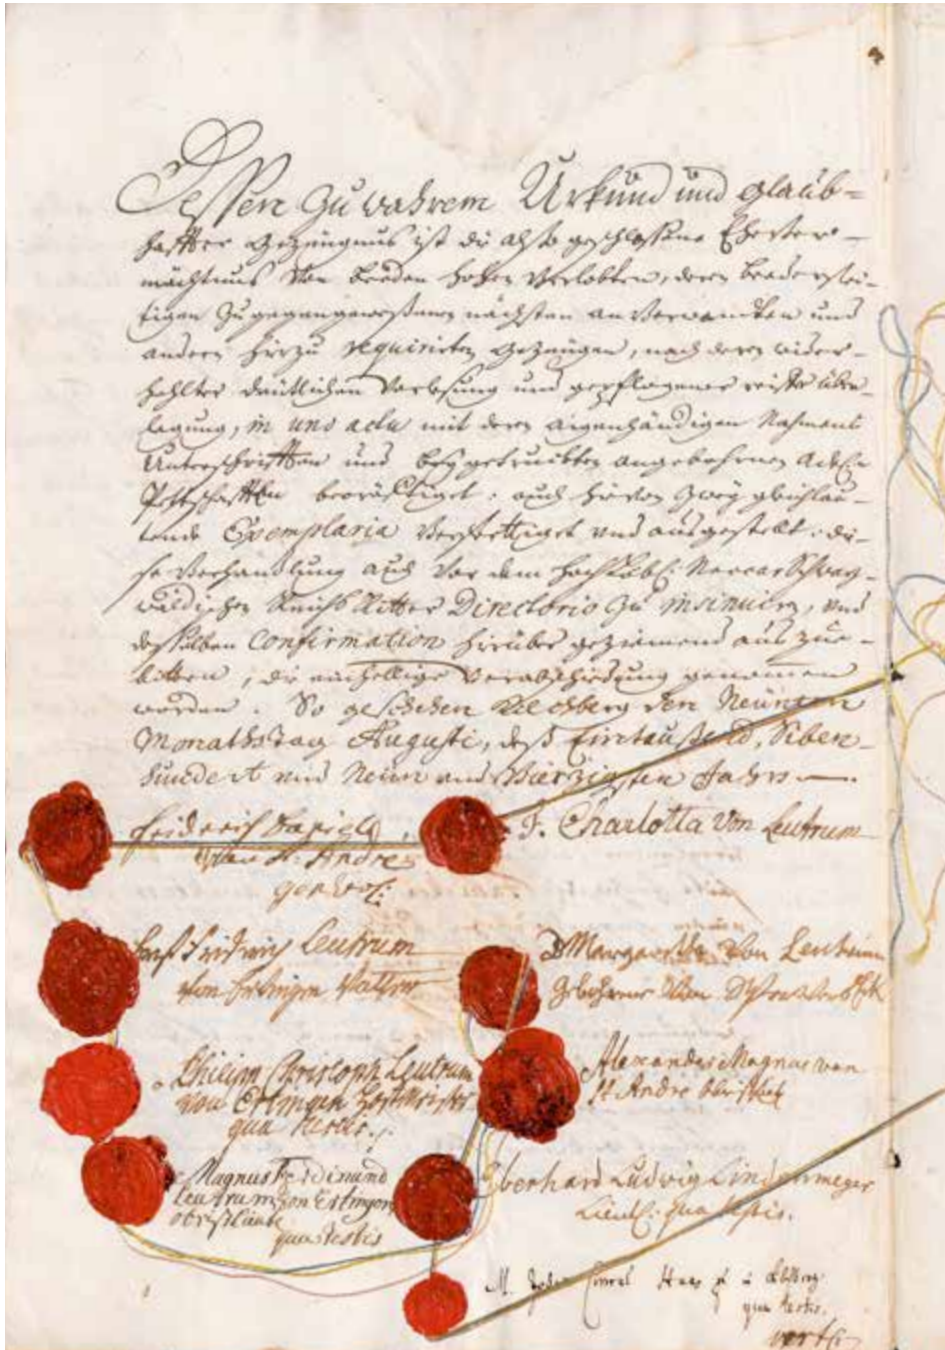 Dessen zu wahrem Urkund und glaub-
hafter Gezeugnus ist die also geschlossene Ehever-
mächtnus von beeden hohen Verlobten, deren beederseiti-
tigen zugegengewesenen nächsten anverwandten und
andern hierzu requirirten Gezeugen, nach deren wider-
hohlter deutlichen Verlesung und gepflogener reifer über-
legung, in uno actu mit deren aigenhändigen Nahmens
Unterschrifften und beygetruckten angebohrnen Adel.
Pettschafften becräfftiget; auch hiervon zwey gleichlau-
tende Exemplaria verferttiget und ausgestellt, di-
se Verhandlung auch vor dem Hochlöbl: NeccarSchwarz-
wäldischen Reichs Ritter Directorio zu insinuirn, und
desselben Confirmation hierüber geziemend auszue-
bitten, die einhellige Verabschiedung genommen
worden. So geschehen Kilchberg den Neünten
Monathstag Augusti, deß Eintaußend, Siben-
hundert und Neün und Vierzigsten Jahrs.
Friderich Daniel
von St. Andre
F. Charlotta von Leutrum
Ernst Fridrich Leutrum
von Ertingen Vatter
Margaretha von Leutrum
gebohrne von
Philipp Christoph Leutrum
von Ertingen
qua testis.
Alexander Magnus von
St Andre Obrist
Magnus Ferdinand
Leutrum von Ertingen
qua testis
Eberhard Ludwig Lindenmeyer
Lieut: qua testis.
M. Conrad Haas
qua testis.